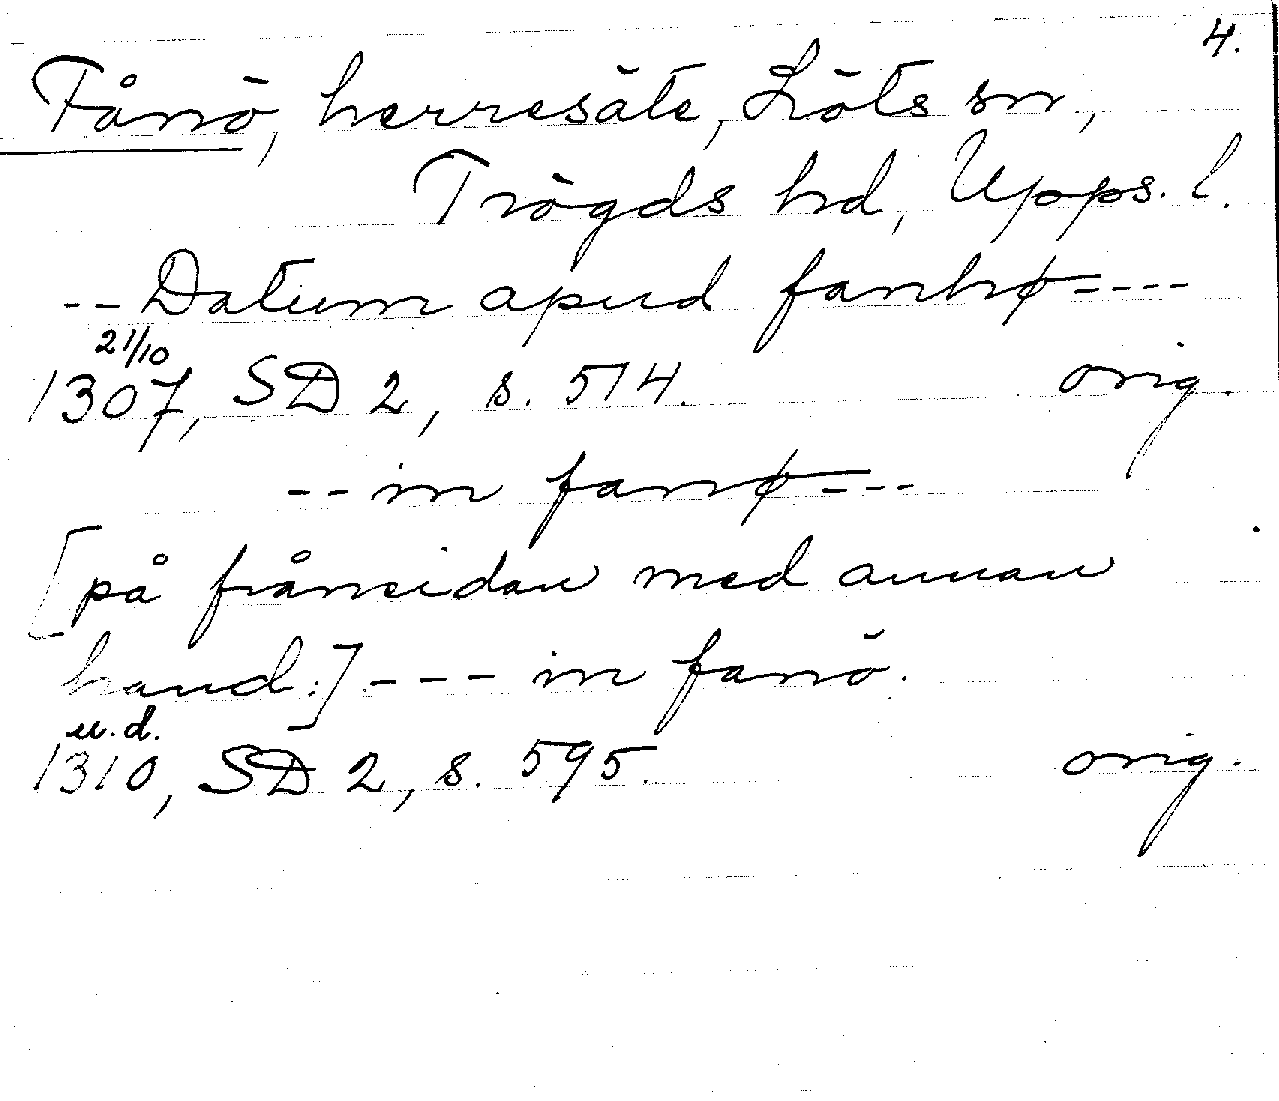 4.
Fånö, herresäte, Löts sn,
Trögds hd, Upps. l.
-- Datum apud fanhø ----
21/10
1307, SD 2, s. 514. orig.
-- in fanø ---
[på frånsidan med annan
hand:] --- in fanö.
u.d.
1310, SD 2, s. 595. orig.